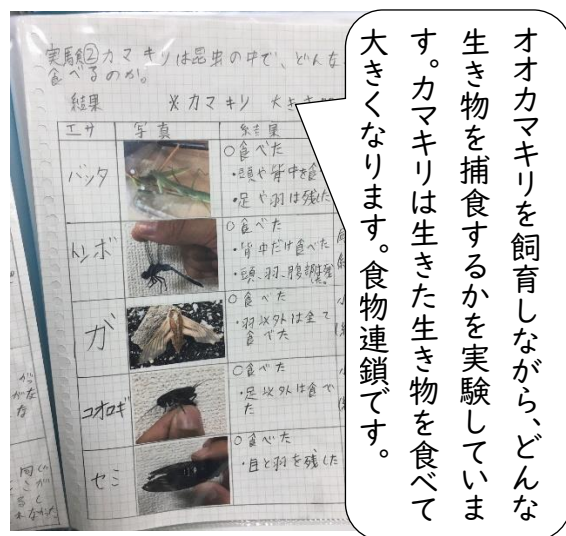 オオカマキリを飼育しながら、どんな
生き物を捕食するかを実験していま
す。カマキリは生きた生き物を食べて
大きくなります。食物連鎖です。
実験② カマキリは昆虫の中で、どんな
食べるのか。
結果 ※カマキリ 大きさ
エサ 写真 結果
バッタ
○食べた
・頭や背中を食
・足や羽は残した
トンボ
○食べた
・背中だけ食べた
・頭、羽、腹
ガ
○食べた
・羽以外は全て
食べた
コオロギ
○食べた
・足以外は食べ
た
セミ
○食べた
・目と羽を残した